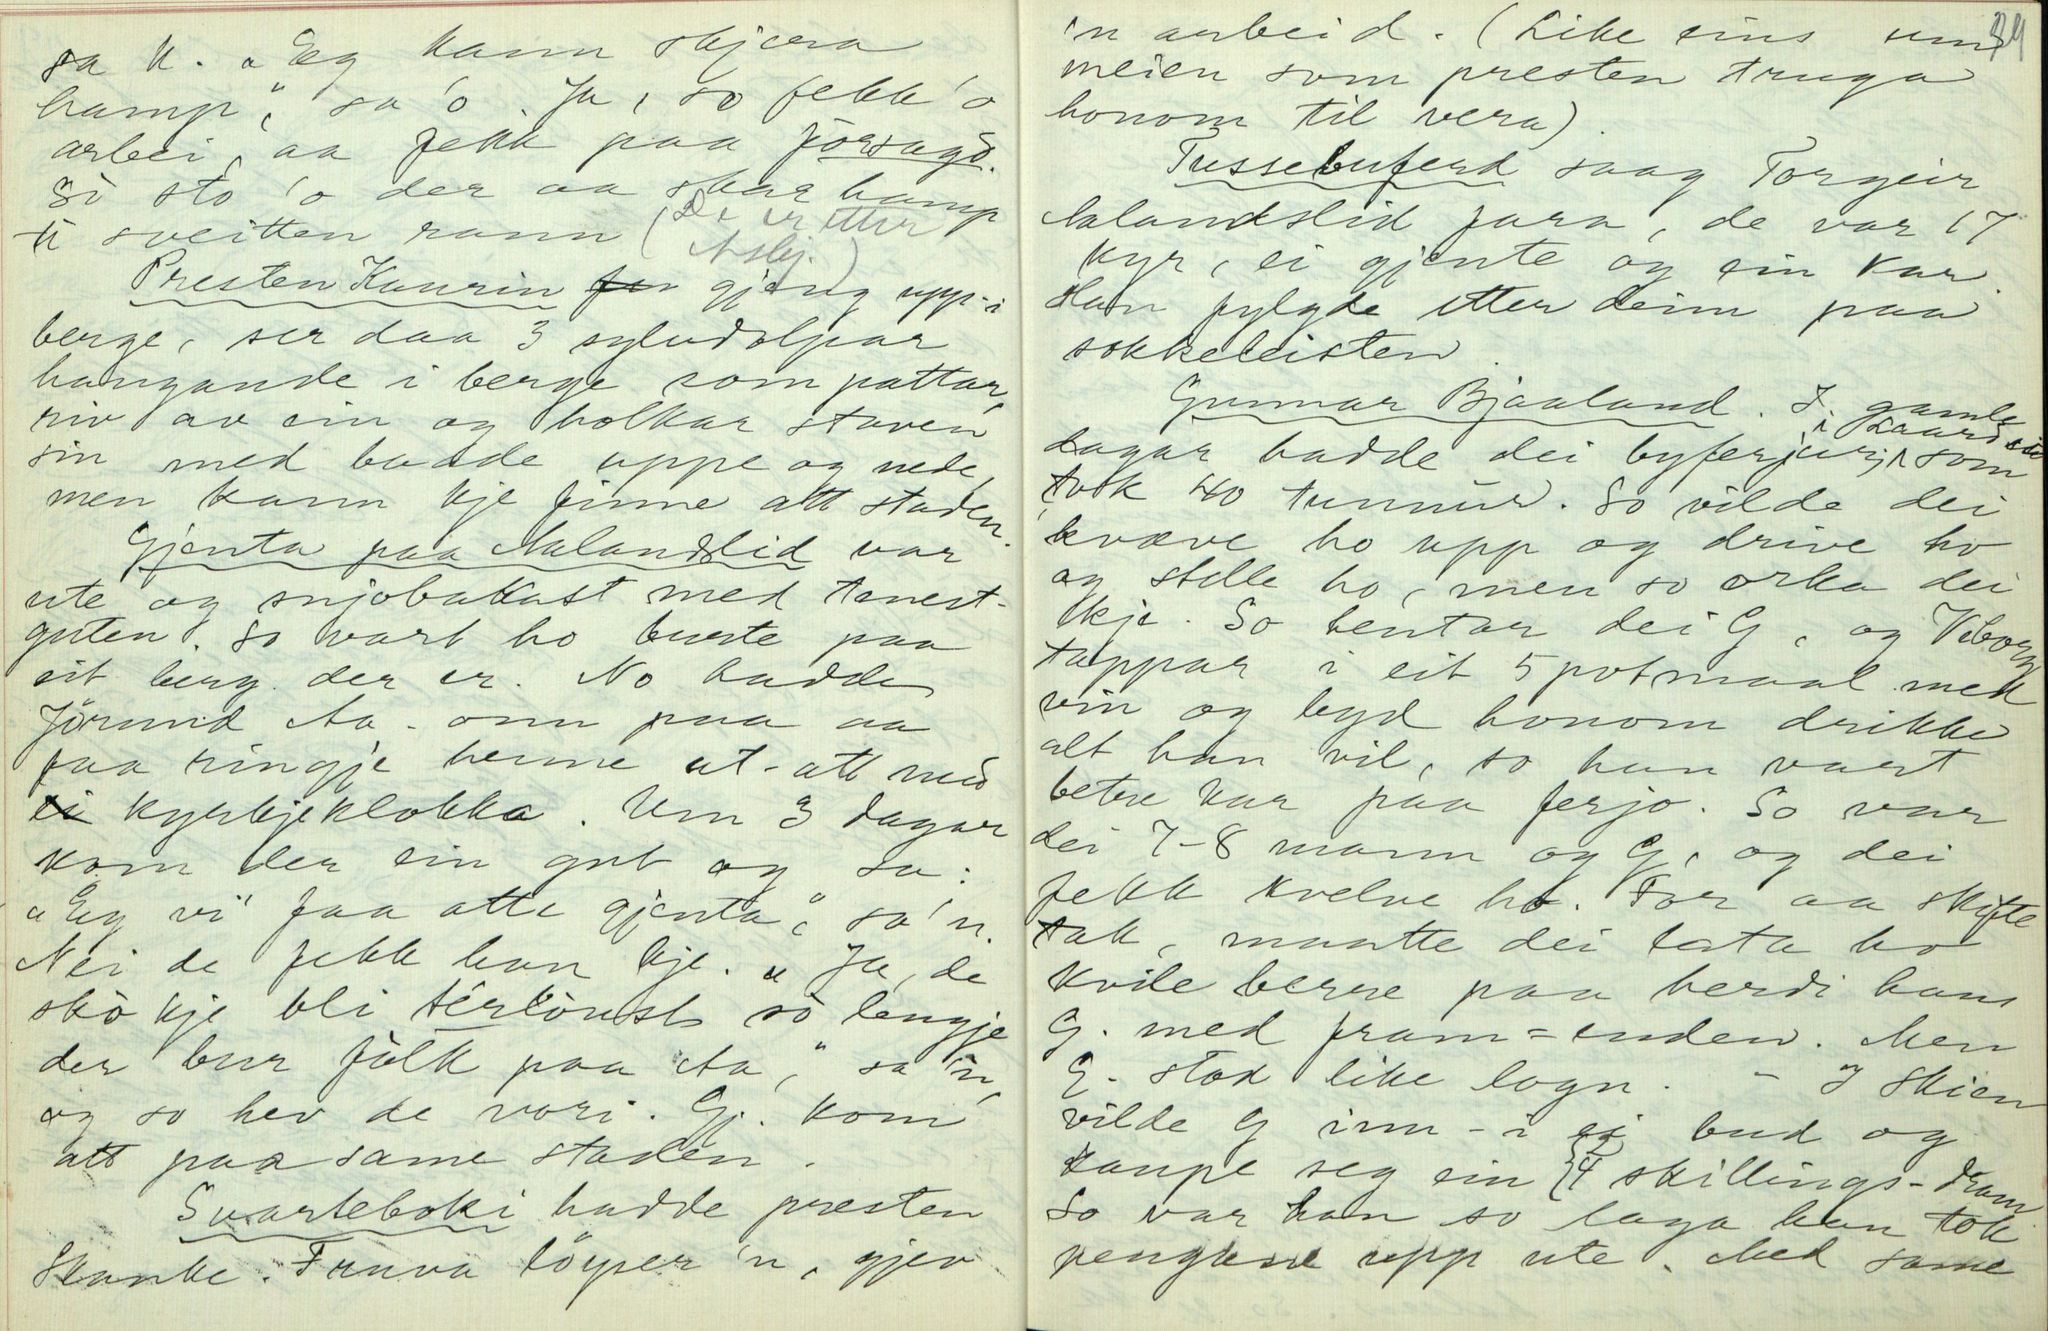 sa K. „Eg kann skjæra
hamp,“ sa 'o. Ja, so fekk 'o
arbei, aa fekk paa försagd.
Sò sto 'o der aa skar hamp
ti sveitten rann (De er etter
Asbj.)
Presten Kaurin for gjeng upp-i
berge, ser daa 3 syludolpar
hangande i berge som pattar,
riv av ein og holkar staven
sin med baade uppe og nede,
men kann kje finne att staden.
Gjenta paa Aalandslid var
ute og snjobakast med tenest-
guten. So vart ho burte paa
eit berg der er. No hadde
Jörund Aa- onn paa aa
faa ringje henne ut-att med
ei kyrkjeklokka. Um 3 dagar
kom der ein gut og sa:
„Eg vi' faa atte gjenta,“ sa'n.
Nei de fekk han kje. „Ja, de
skò kje bli térlöust sò lengje
der bur fòlk paa Aa,“ sa 'n,
og so hev de vori. Gj. kom
att paa same staden.
Svarteboki hadde presten
Skanke. Fruva löyser 'n, gjev
34
'n arbeid. (Like eins um
meien som presten truga
honom til vera).
Tussebuferd saag Torgeir
Aalandslid fara, de var 17
kyr, ei gjente og ein kar.
Han fylgde etter deim paa
sokkeleisten.
Gunnar Bjaaland. I gamle
dagar hadde dei byferjur i Laardal som
tok 40 tunnur. So vilde dei
kvæve ho upp og drive ho
og stelle ho, men so orka dei
kje. So hentar dei G, og Viborg
tappar i eit 5 potmaal med
vin og byd honom drikke
alt han vil, so han vart
betre kar paa ferjo. So var
dei 7-8 mann og G, og dei
fekk kvelve ho. For aa skifte
tak, maatte dei lata ho
kvile berre paa herdi hans
G. med fram=enden. Men
G. stod like logn. - I Skien
vilde G inn-i ei bud og
kaupe seg ein 4 skillings-dram
So var han so laga han tok
pengane upp ute. Med same